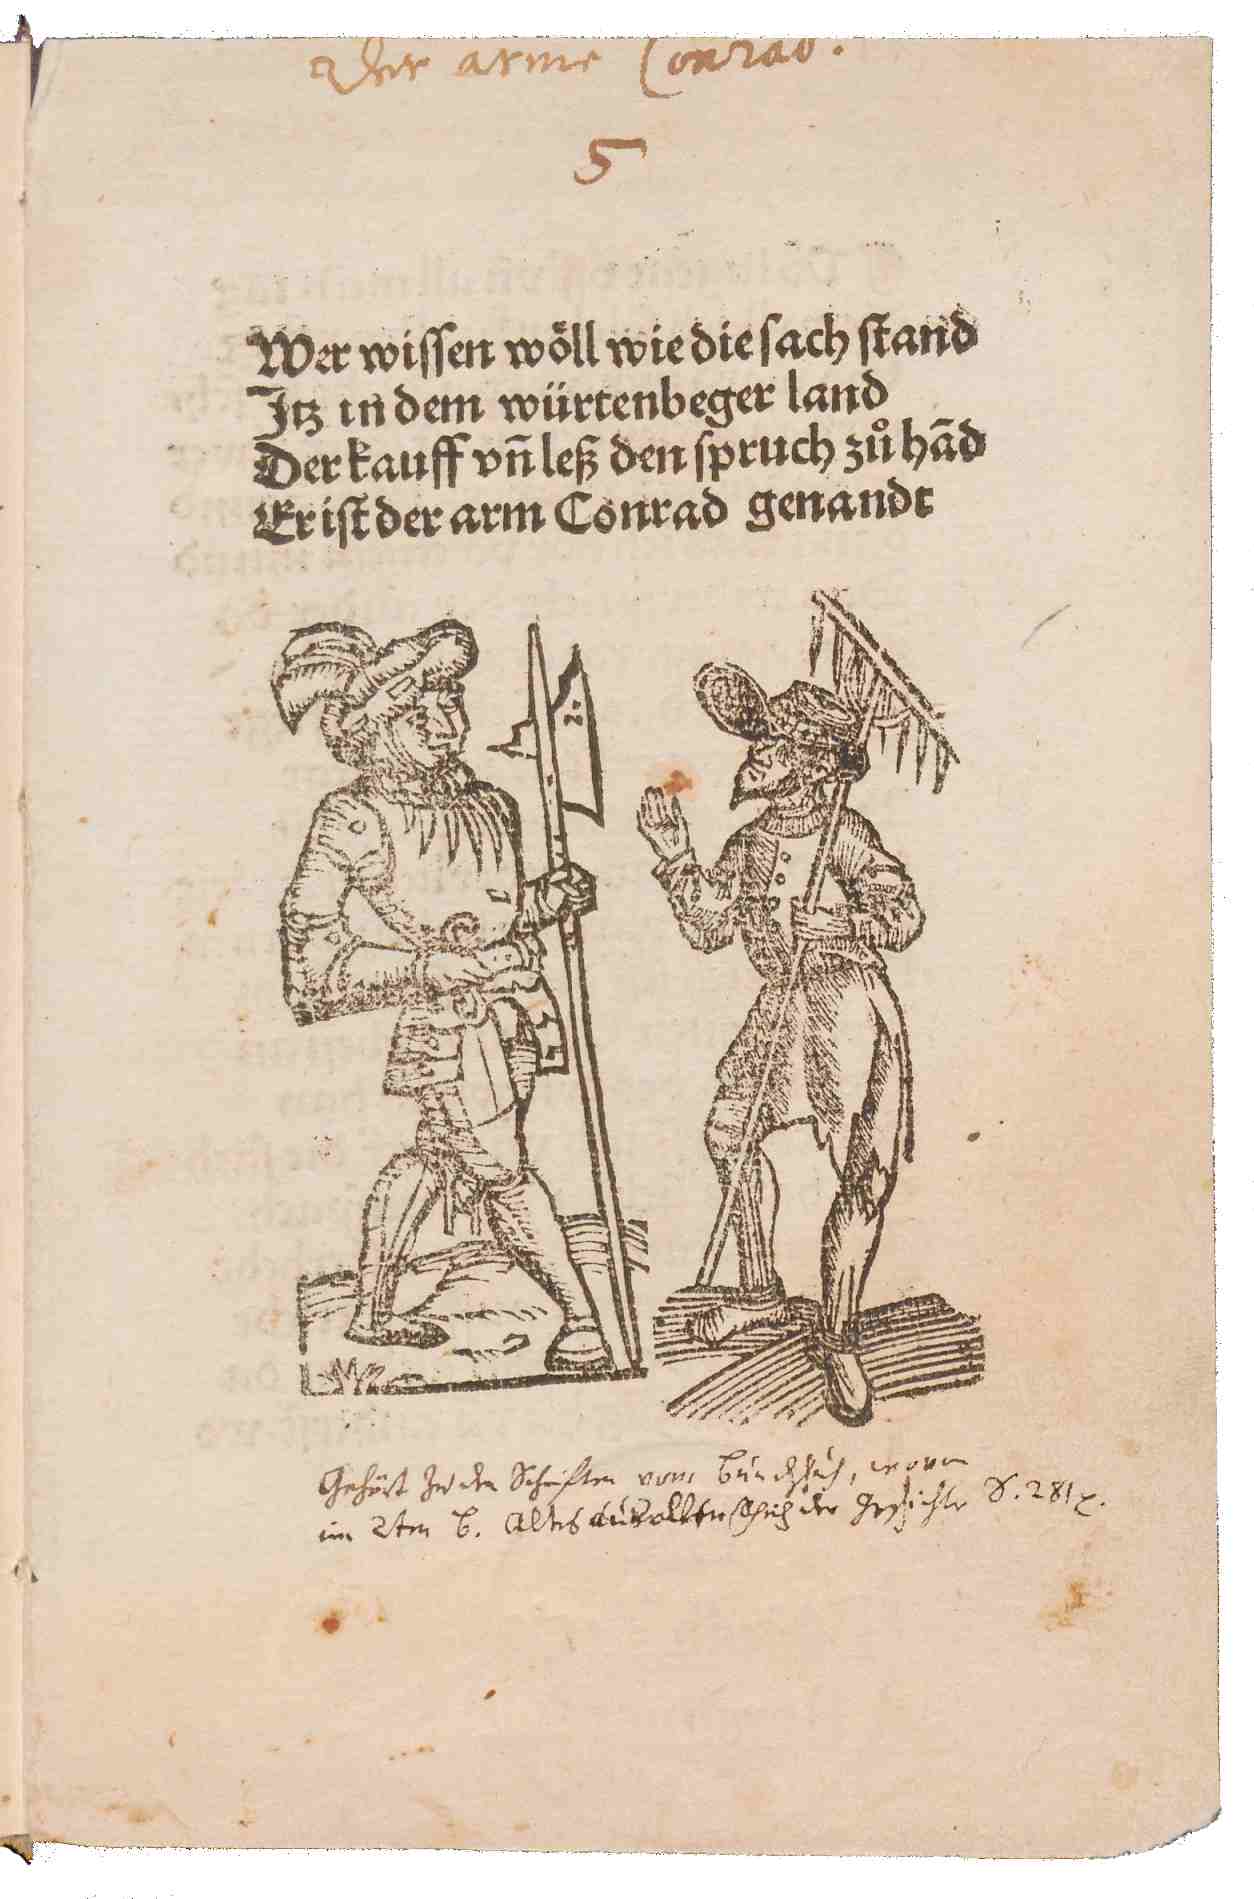 Der arme Conrad.
5
Wer wissen wöll wie die sach stand
Jtz in dem würtenbeger land
Der kauff vn̄ leß den spruch zů hād
Er ist der arm Conrad genandt
Gehört zu den Schriften vom Bundschuh, wovon
im 2ten B. Altes aus allen der Geschichte S. 281